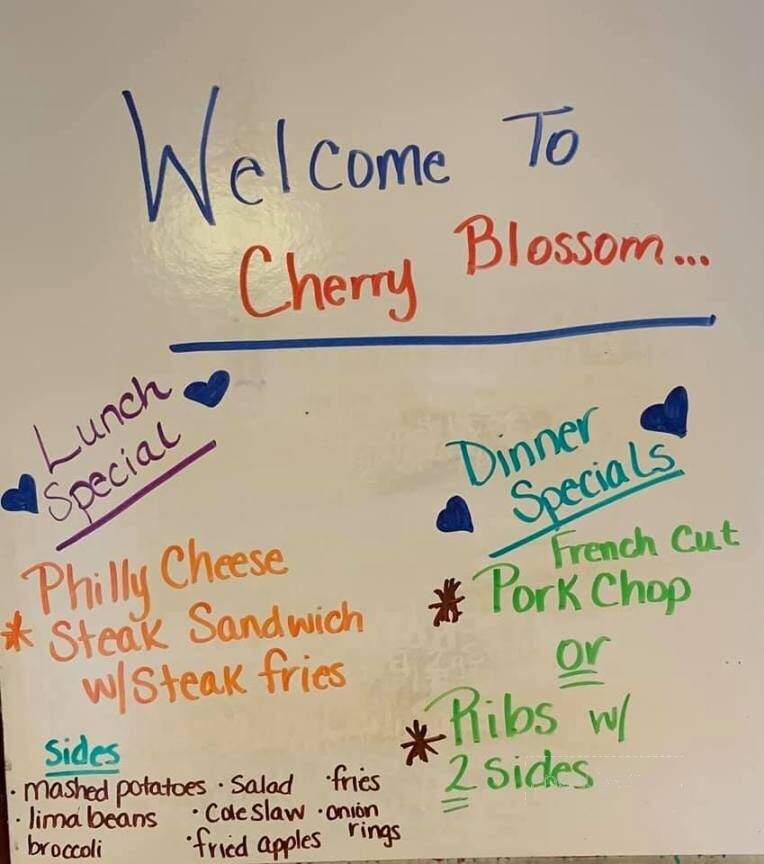 Welcome To
Cherry Blossom...
Lunch
Special
Philly Cheese
* Steak Sandwich
w/Steak fries
Dinner
Specials
French Cut
* Pork Chop
or
* Ribs w/
2 sides
Sides
· mashed potatoes · Salad · fries
· lima beans · Coleslaw · onion
rings
broccoli · fried apples